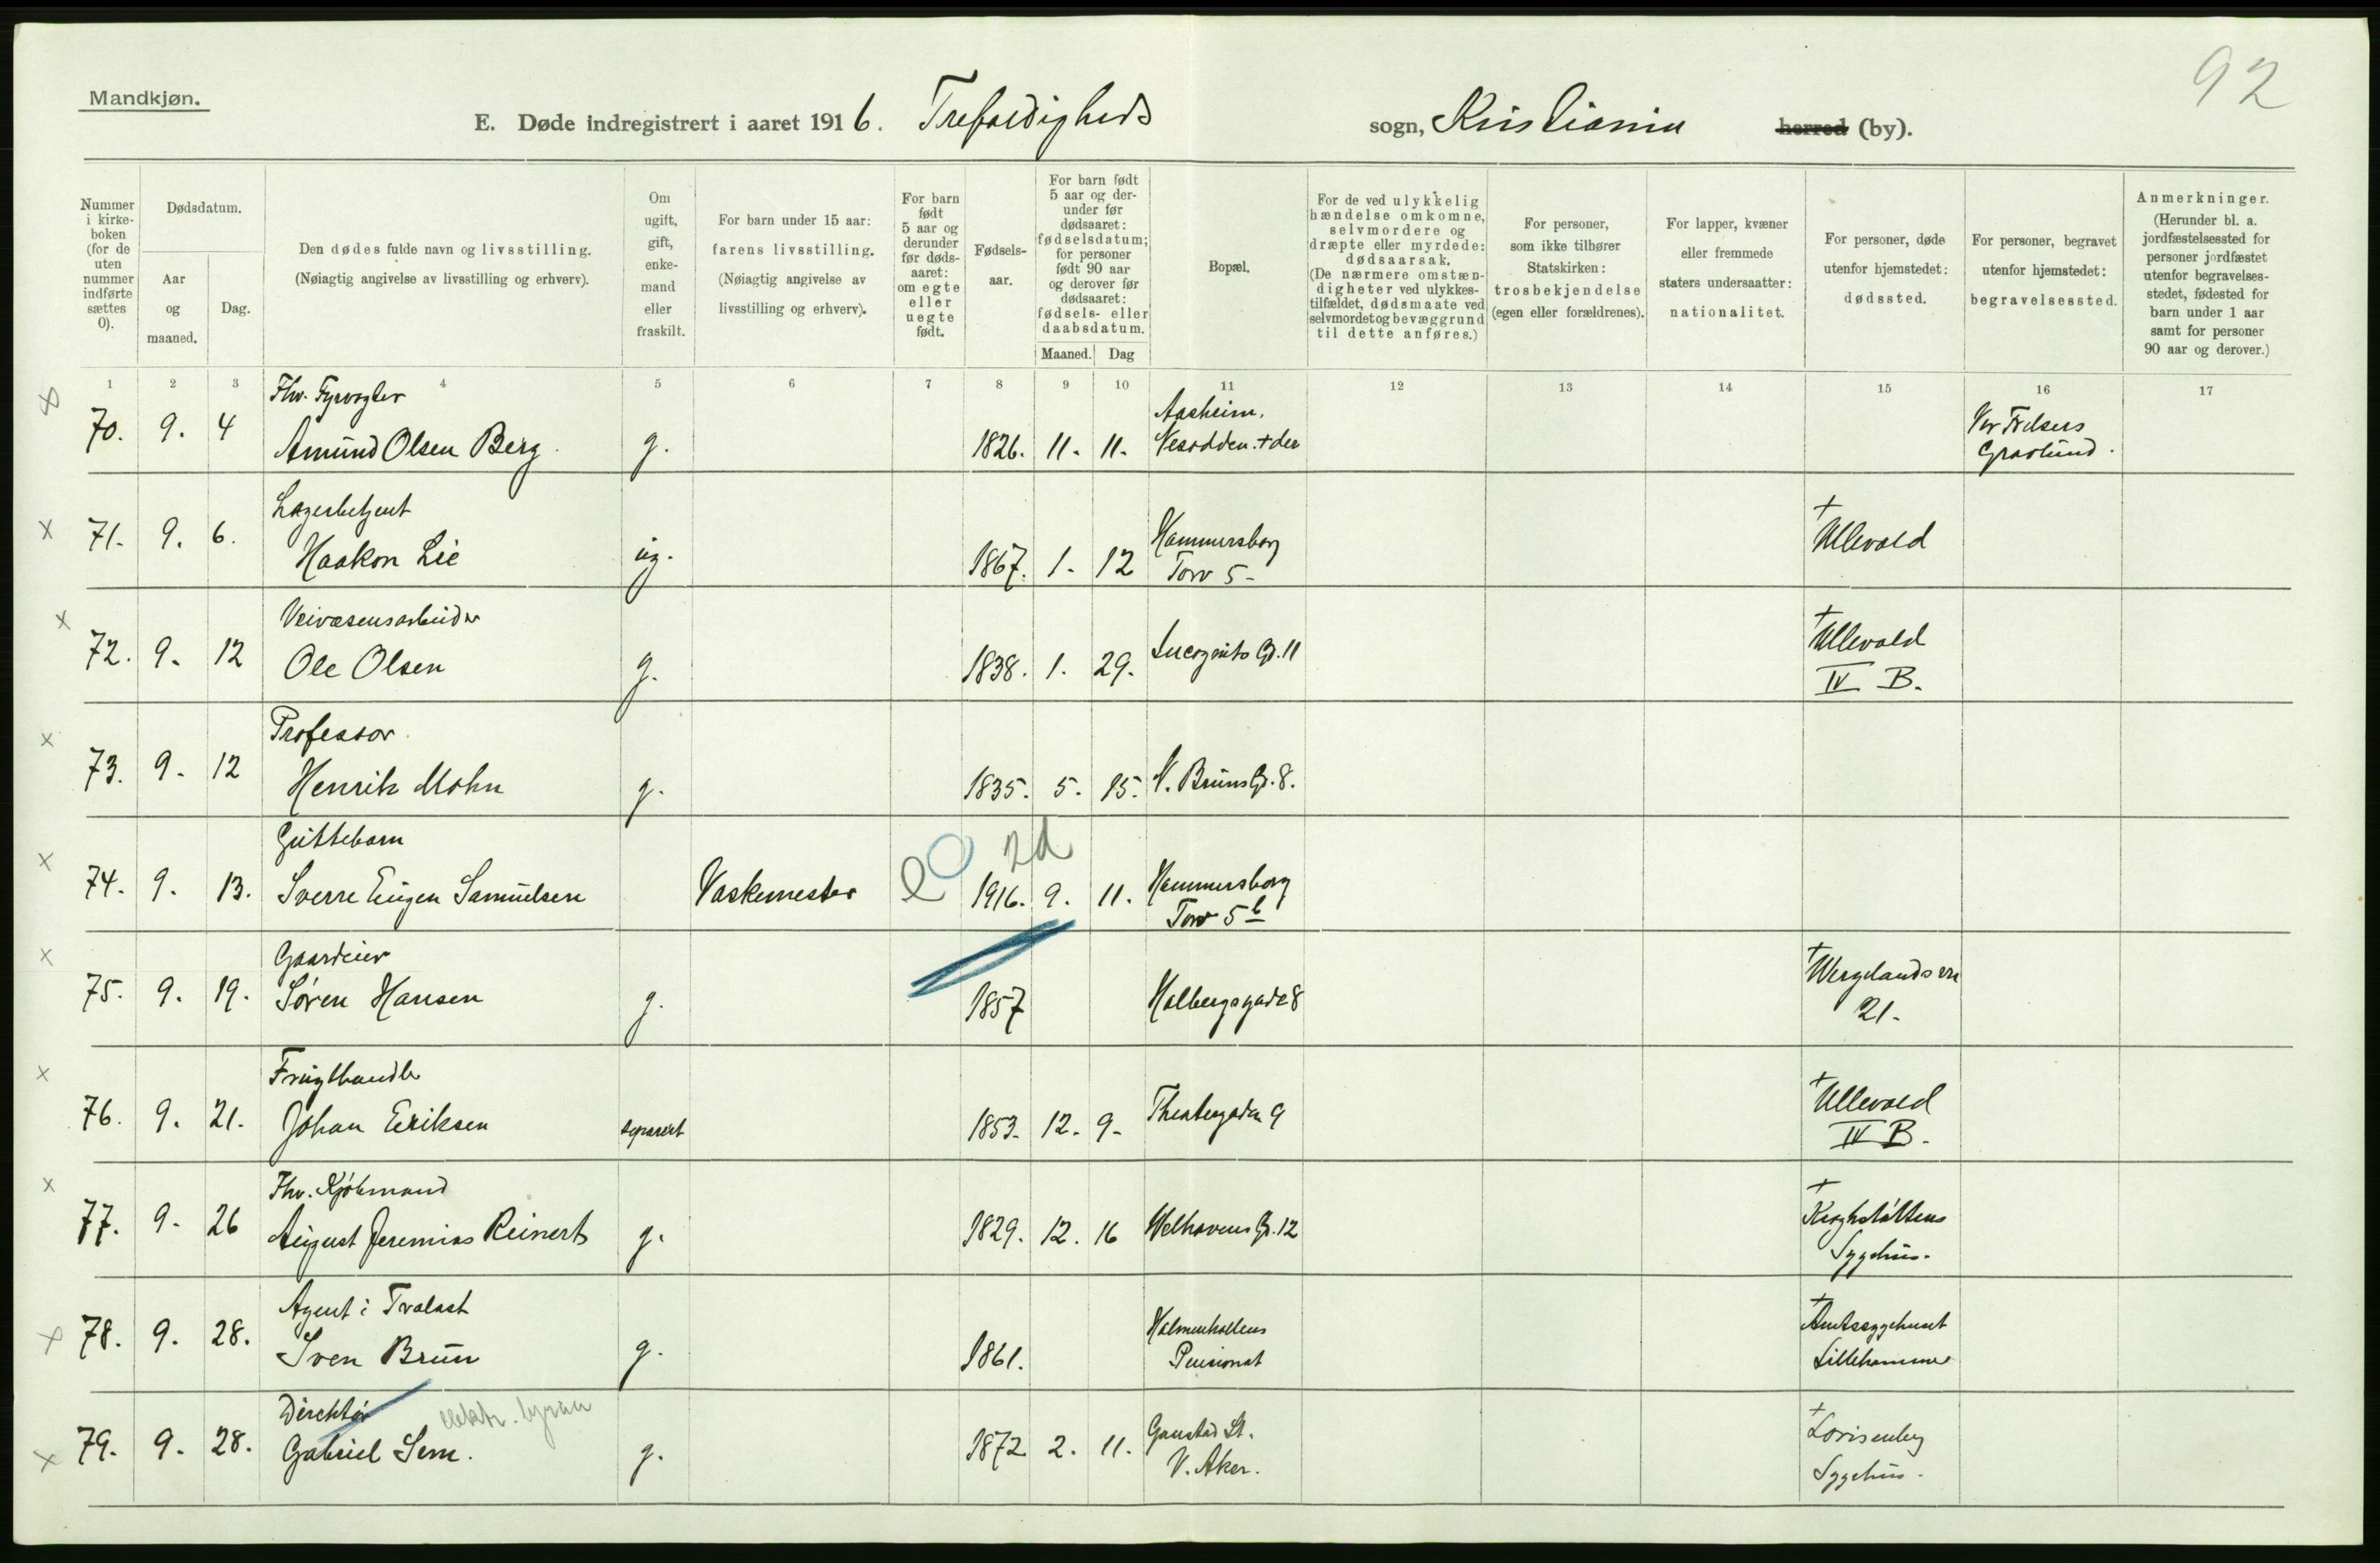 92
Mandkjøn.
E. Døde indregistrert i aaret 1916. Trefoldigheds sogn, Kristiania herred (by).
Nummer i kirke-boken (for de uten nummer indførte sættes 0).
Dødsdatum.
Aar og maaned.
Dag.
Den dødes fulde navn og livsstilling.
(Nøiagtig angivelse av livsstilling og erhverv).
Om ugift, gift, enke-mand eller fraskilt.
For barn under 15 aar:
farens livsstilling.
(Nøiagtig angivelse av livsstilling og erhverv).
For barn født 5 aar og derunder før døds-aaret: om egte eller uegte født.
Fødsels-aar.
For barn født 5 aar og der-under før dødsaaret: fødselsdatum; for personer født 90 aar og derover før dødsaaret: fødsels- eller daabsdatum.
Maaned. Dag
Bopæl.
For de ved ulykkelig hændelse omkomne, selvmordere og dræpte eller myrdede: dødsaarsak. (De nærmere omstæn-digheter ved ulykkes-tilfældet, dødsmaate ved selvmordet og bevæggrund til dette anføres.)
For personer, som ikke tilhører Statskirken: trosbekjendelse (egen eller forældrenes).
For lapper, kvæner eller fremmede staters undersaatter: nationalitet.
For personer, døde utenfor hjemstedet: dødssted.
For personer, begravet utenfor hjemstedet: begravelsessted.
Anmerkninger. (Herunder bl. a. jordfæstelsessted for personer jordfæstet utenfor begravelses-stedet, fødested for barn under 1 aar samt for personer 90 aar og derover.)
1 2 3 4 5 6 7 8 9 10 11 12 13 14 15 16 17
Fhv. Fyrvogter
Aasheim.
Vor Frelsers
70. 9. 4 Amund Olsen Berg. g. 1826. 11. 11. Nesodden. + der Gravlund.
Lagerbetjent
Hammersborg
71. 9. 6. Haakon Lie ug. 1867. 1. 12 Torv 5- + Ullevold
Veivæsensarbeider
72. 9. 12 Ole Olsen g. 1838. 1. 29. Incognito Gd. 11 + Ullevold
IV B.
Professor
73. 9. 12 Henrik Mohn g. 1835. 5. 15. N. Bruns Gd. 8.
Guttebarn
2d
74. 9. 13. Sverre Eugen Samuelsen Vaskemester e 1916. 9. 11. Hammersborg
Torv 5b
Gaardeier
75. 9. 19. Søren Hansen g. 1857 Holbergsgade 8 + Wergelandsvn
21.
Frugthandler
76. 9. 21. Johan Eriksen separert 1853. 12. 9. Theatergaden 9 + Ullevold
IV B.
Fhv. Kjøbmand
77. 9. 26 August Jeremias Reinert g. 1829. 12. 16 Welhavens Gd. 12 + Kroghstøttens
Sygehus.
Agent i Trælast
Holmenkollens
+ Amtssygehuset
78. 9. 28. Sven Brun g. 1861. Pensionat Lillehammer
Direktør elektr. byraa
Gaustad St.
+ Lovisenberg
79. 9. 28. Gabriel Sem. g. 1872 2. 11. V. Aker. Sygehus.